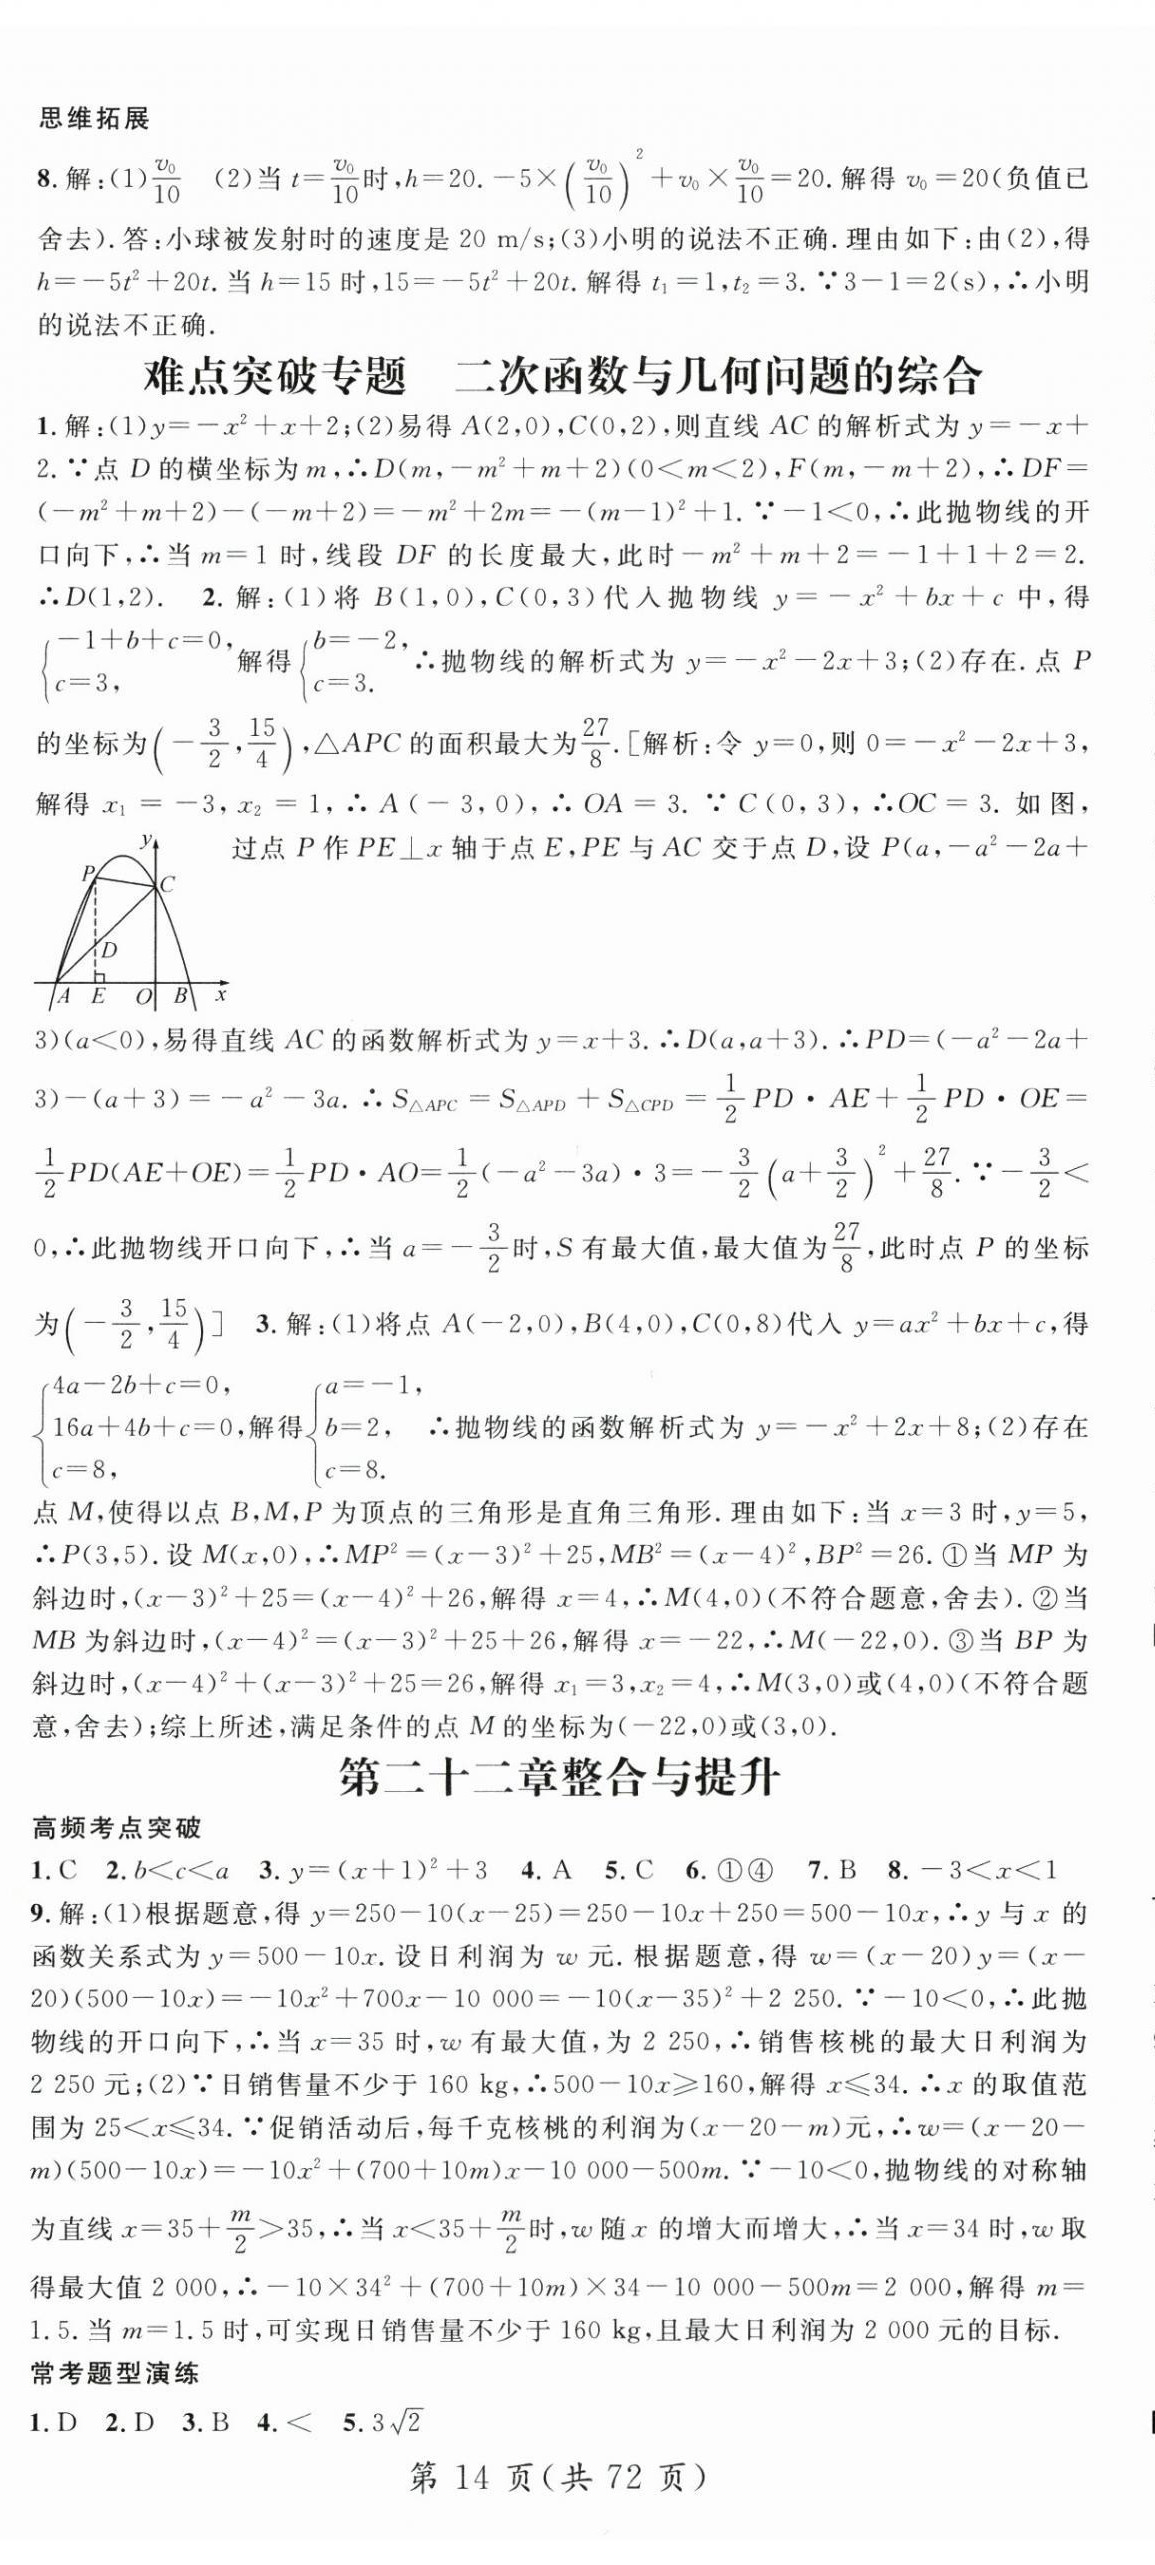 思维拓展
8.解:(1)v₀/10 (2)当 t=v₀/10时,h=20.-5×(v₀/10)²+v₀×v₀/10=20.解得 v₀=20(负值已
舍去).答:小球被发射时的速度是 20 m/s;(3)小明的说法不正确.理由如下:由(2),得
h=-5t²+20t.当 h=15 时,15=-5t²+20t.解得 t₁=1,t₂=3.∵3-1=2(s),∴小明
的说法不正确.
难点突破专题 二次函数与几何问题的综合
1.解:(1)y=-x²+x+2;(2)易得 A(2,0),C(0,2),则直线 AC 的解析式为 y=-x+
2.∵点 D 的横坐标为 m,∴D(m,-m²+m+2)(0<m<2),F(m,-m+2),∴DF=
(-m²+m+2)-(-m+2)=-m²+2m=-(m-1)²+1.∵-1<0,∴此抛物线的开
口向下,∴当 m=1 时,线段 DF 的长度最大,此时-m²+m+2=-1+1+2=2.
∴D(1,2). 2.解:(1)将 B(1,0),C(0,3)代入抛物线 y=-x²+bx+c 中,得
{-1+b+c=0, c=3, 解得{b=-2, c=3. ∴抛物线的解析式为 y=-x²-2x+3;(2)存在.点 P
的坐标为(-3/2,15/4),△APC的面积最大为27/8.[解析:令 y=0,则 0=-x²-2x+3,
解得 x₁=-3,x₂=1,∴A(-3,0),∴OA=3.∵C(0,3),∴OC=3.如图,
过点 P 作 PE⊥x 轴于点 E,PE 与 AC 交于点 D,设 P(a,-a²-2a+
y
P
C
D
A E O B x
3)(a<0),易得直线 AC 的函数解析式为 y=x+3.∴D(a,a+3).∴PD=(-a²-2a+
3)-(a+3)=-a²-3a.∴S△APC=S△APD+S△CPD=1/2 PD·AE+1/2 PD·OE=
1/2 PD(AE+OE)=1/2 PD·AO=1/2(-a²-3a)·3=-3/2(a+3/2)²+27/8.∵-3/2<
0,∴此抛物线开口向下,∴当 a=-3/2时,S 有最大值,最大值为27/8,此时点 P 的坐标
为(-3/2,15/4)] 3.解:(1)将点 A(-2,0),B(4,0),C(0,8)代入 y=ax²+bx+c,得
{4a-2b+c=0, 16a+4b+c=0, c=8, 解得{a=-1, b=2, c=8. ∴抛物线的函数解析式为 y=-x²+2x+8;(2)存在
点 M,使得以点 B,M,P 为顶点的三角形是直角三角形.理由如下:当 x=3 时,y=5,
∴P(3,5).设 M(x,0),∴MP²=(x-3)²+25,MB²=(x-4)²,BP²=26.①当 MP 为
斜边时,(x-3)²+25=(x-4)²+26,解得 x=4,∴M(4,0)(不符合题意,舍去).②当
MB 为斜边时,(x-4)²=(x-3)²+25+26,解得 x=-22,∴M(-22,0).③当 BP 为
斜边时,(x-4)²+(x-3)²+25=26,解得 x₁=3,x₂=4,∴M(3,0)或(4,0)(不符合题
意,舍去);综上所述,满足条件的点 M 的坐标为(-22,0)或(3,0).
第二十二章整合与提升
高频考点突破
1.C 2.b<c<a 3.y=(x+1)²+3 4.A 5.C 6.①④ 7.B 8.-3<x<1
9.解:(1)根据题意,得 y=250-10(x-25)=250-10x+250=500-10x,∴y 与 x 的
函数关系式为 y=500-10x.设日利润为 w 元.根据题意,得 w=(x-20)y=(x-
20)(500-10x)=-10x²+700x-10 000=-10(x-35)²+2 250.∵-10<0,∴此抛
物线的开口向下,∴当 x=35 时,w 有最大值,为 2 250,∴销售核桃的最大日利润为
2 250 元;(2)∵日销售量不少于 160 kg,∴500-10x≥160,解得 x≤34.∴x 的取值范
围为 25<x≤34.∵促销活动后,每千克核桃的利润为(x-20-m)元,∴w=(x-20-
m)(500-10x)=-10x²+(700+10m)x-10 000-500m.∵-10<0,抛物线的对称轴
为直线 x=35+m/2>35,∴当 x<35+m/2时,w 随 x 的增大而增大,∴当 x=34 时,w 取
得最大值 2 000,∴-10×34²+(700+10m)×34-10 000-500m=2 000,解得 m=
1.5.当 m=1.5 时,可实现日销售量不少于 160 kg,且最大日利润为 2 000 元的目标.
常考题型演练
1.D 2.D 3.B 4.< 5.3√2
第 14 页(共 72 页)